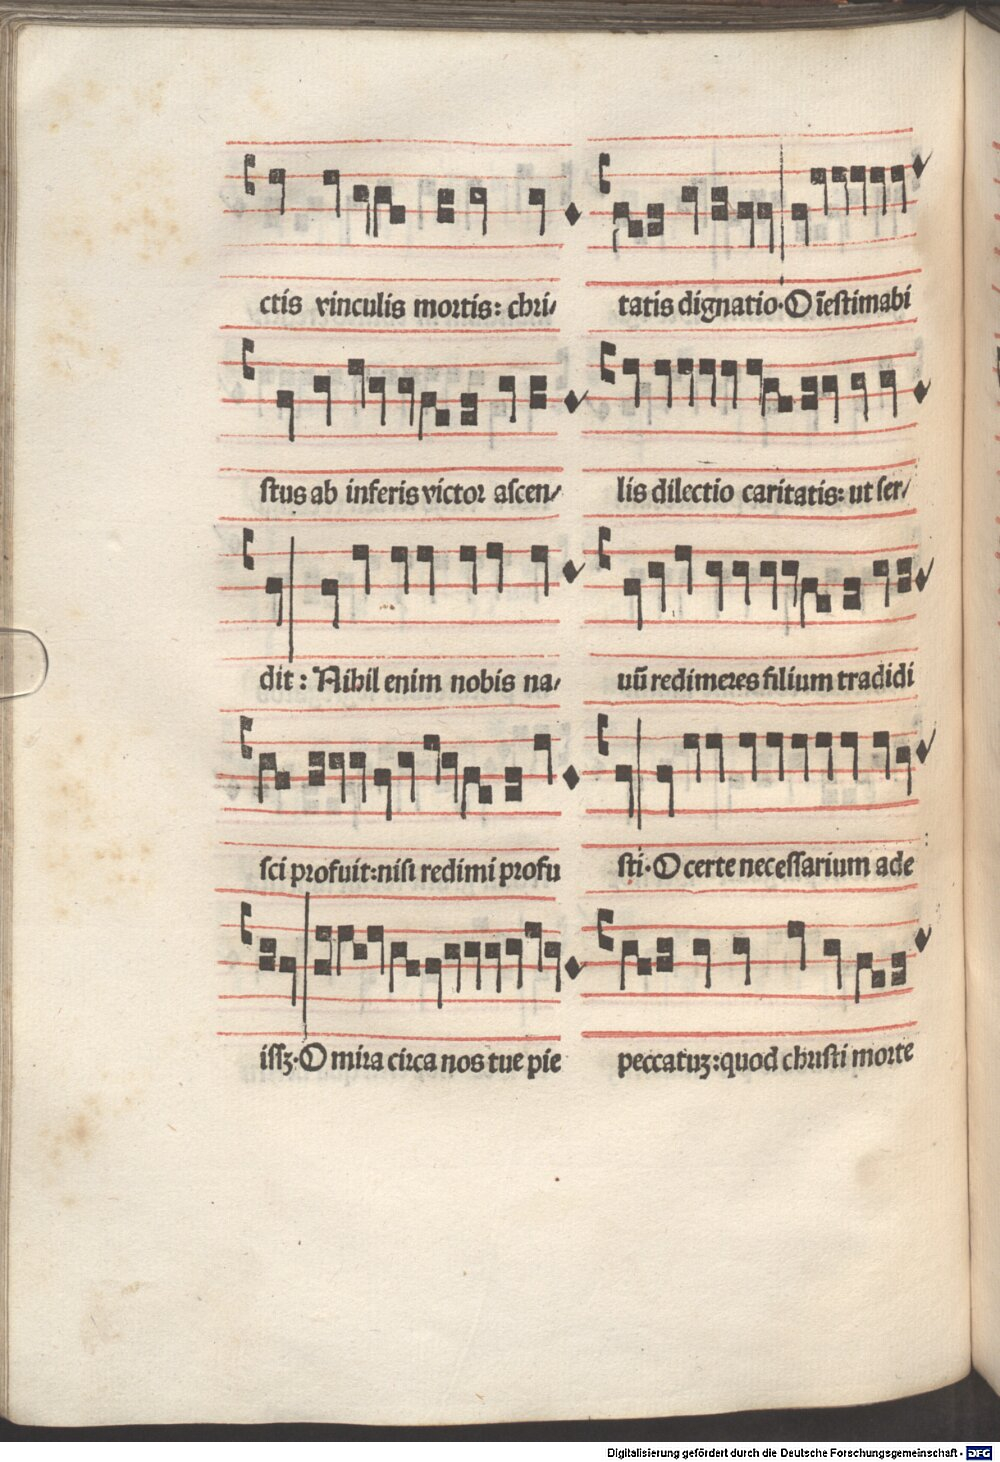 ctis vinculis mortis: chri/
stus ab inferis victor ascen/
dit: Nihil enim nobis na/
sci profuit: nisi redimi profu
issꝫ. O mira circa nos tue pie
tatis dignatio. O īestimabi
lis dilectio caritatis: ut ser/
uū redimeres filium tradidi
sti. O certe necessarium ade
peccatuꝫ: quod christi morte
Digitalisierung gefördert durch die Deutsche Forschungsgemeinschaft - DFG